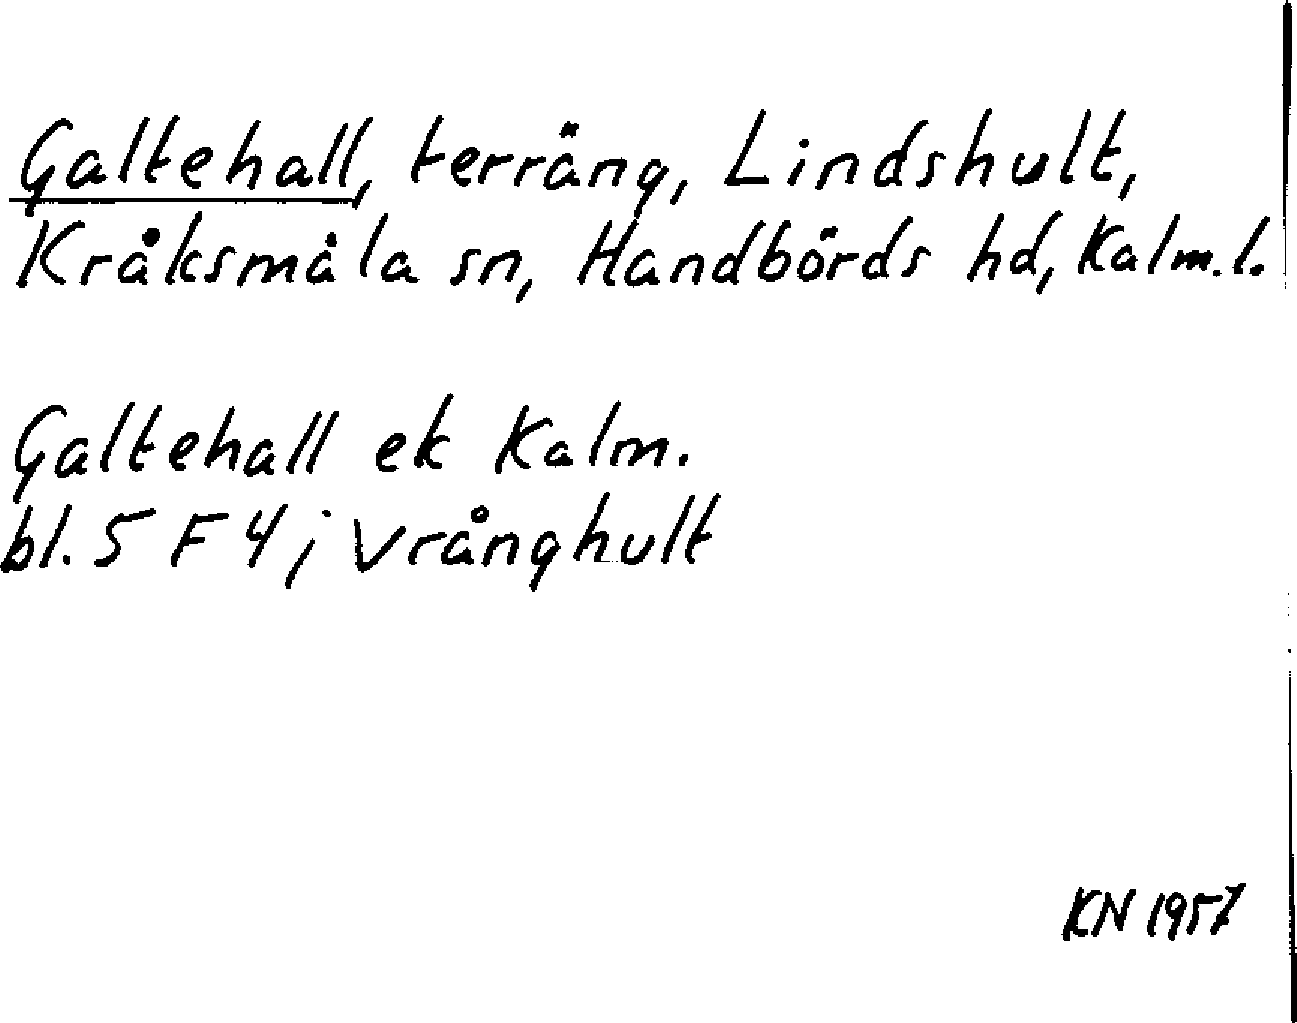 Galtehall, terräng, Lindshult,
Kråksmåla sn, Handbörds hd, Kalm.l.
Galtehall ek Kalm.
bl. 5 F 4; Vrånghult
KN 1957